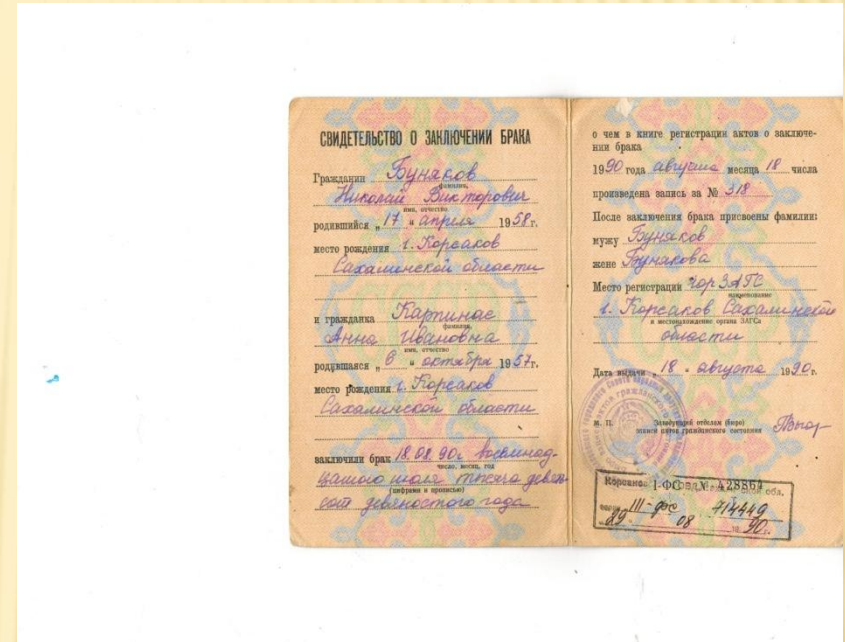 СВИДЕТЕЛЬСТВО О ЗАКЛЮЧЕНИИ БРАКА
Гражданин Буняков
фамилия,
Николай Викторович
имя, отчество
родившийся „17 " апреля 1958г.
место рождения г. Корсаков
Сахалинской области
и гражданка Карпинас
фамилия,
Анна Ивановна
имя, отчество
родившаяся „6 " октября 1957г.
место рождения г. Корсаков
Сахалинской области
заключили брак 18.08.90г. восемнад-
число, месяц, год
цатого июля тысяча девять
(цифрами и прописью)
сот девяностого года
о чем в книге регистрации актов о заключе-
нии брака
1990 года августа месяца 18 числа
произведена запись за № 318
После заключения брака присвоены фамилии:
мужу Буняков
жене Бунякова
Место регистрации гор ЗАГС
наименование
г. Корсаков Сахалинской
и местонахождение органа ЗАГСа
области
Дата выдачи „18 " августа 1990г.
М. П. Заведующий отделом (бюро)
записи актов гражданского состояния
I-ФС № 428864
обл.
III-фс 714449
„29 08 1990.